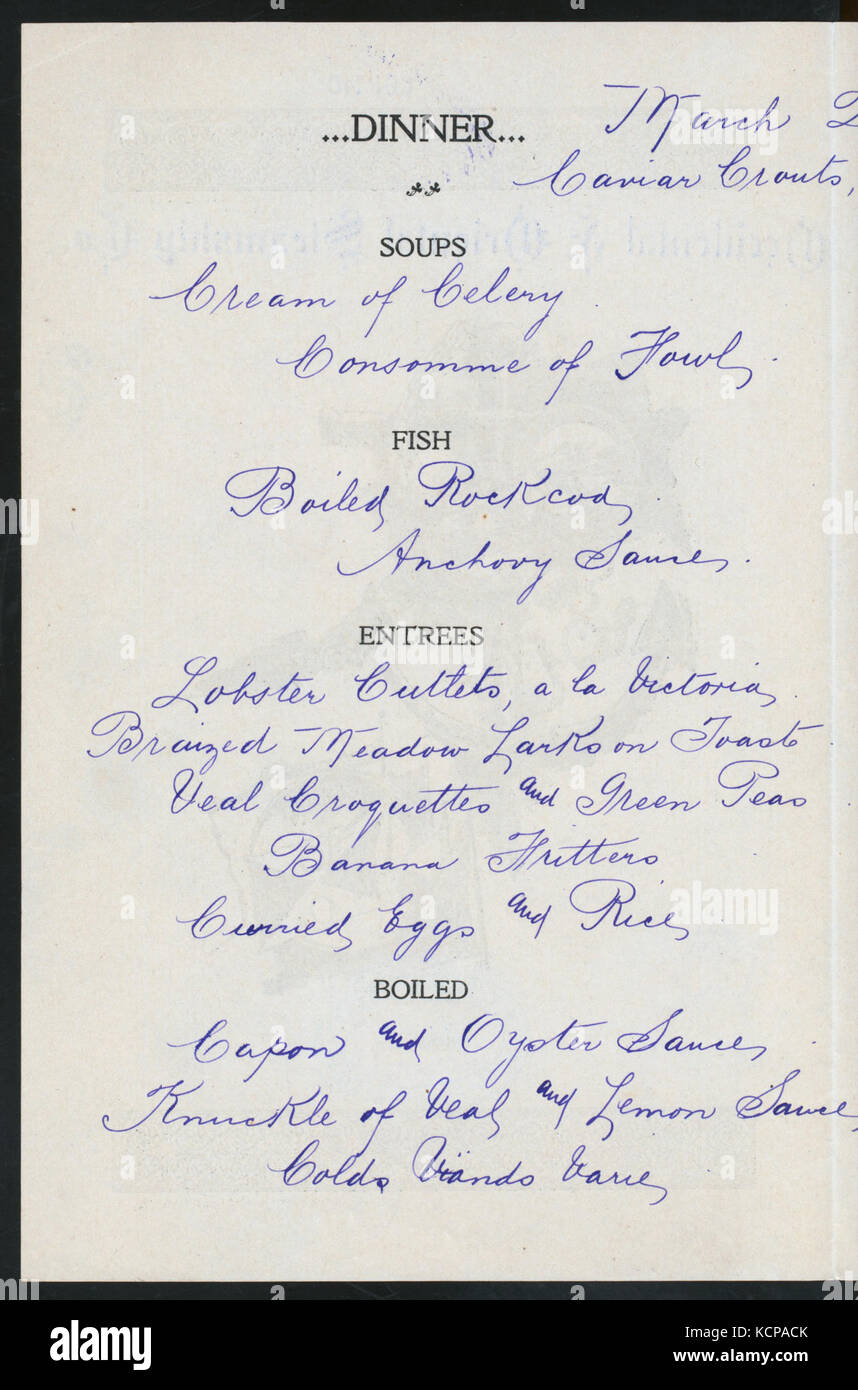 ...DINNER...
March
Caviar Crouts,
SOUPS
Cream of Celery
Consomme of Fowl.
FISH
Boiled Rockcod
Anchovy Sauce.
ENTREES
Lobster Cutlets, a la Victoria
Braized Meadow Larks on Toast
Veal Croquettes and Green Peas
Banana Fritters
Curried Eggs and Rice
BOILED
Capon and Oyster Sauce
Knuckle of Veal and Lemon Sauce
Colds Viands Varie
alamy
Image ID: KCPACK
www.alamy.com